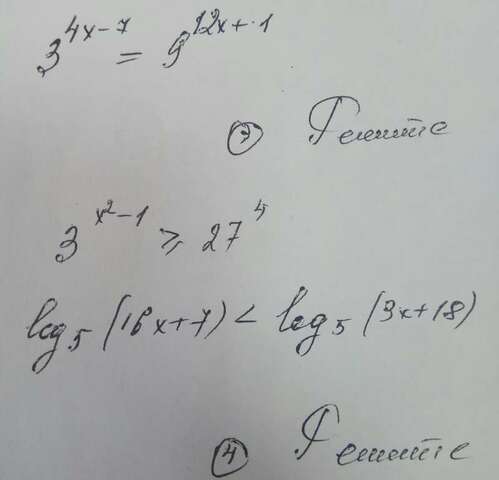 3^{4x-7} = 9^{12x+1}
③ Решите
3^{x^2-1} ≥ 27^4
log_5 (16x+7) < log_5 (3x+18)
④ Решите